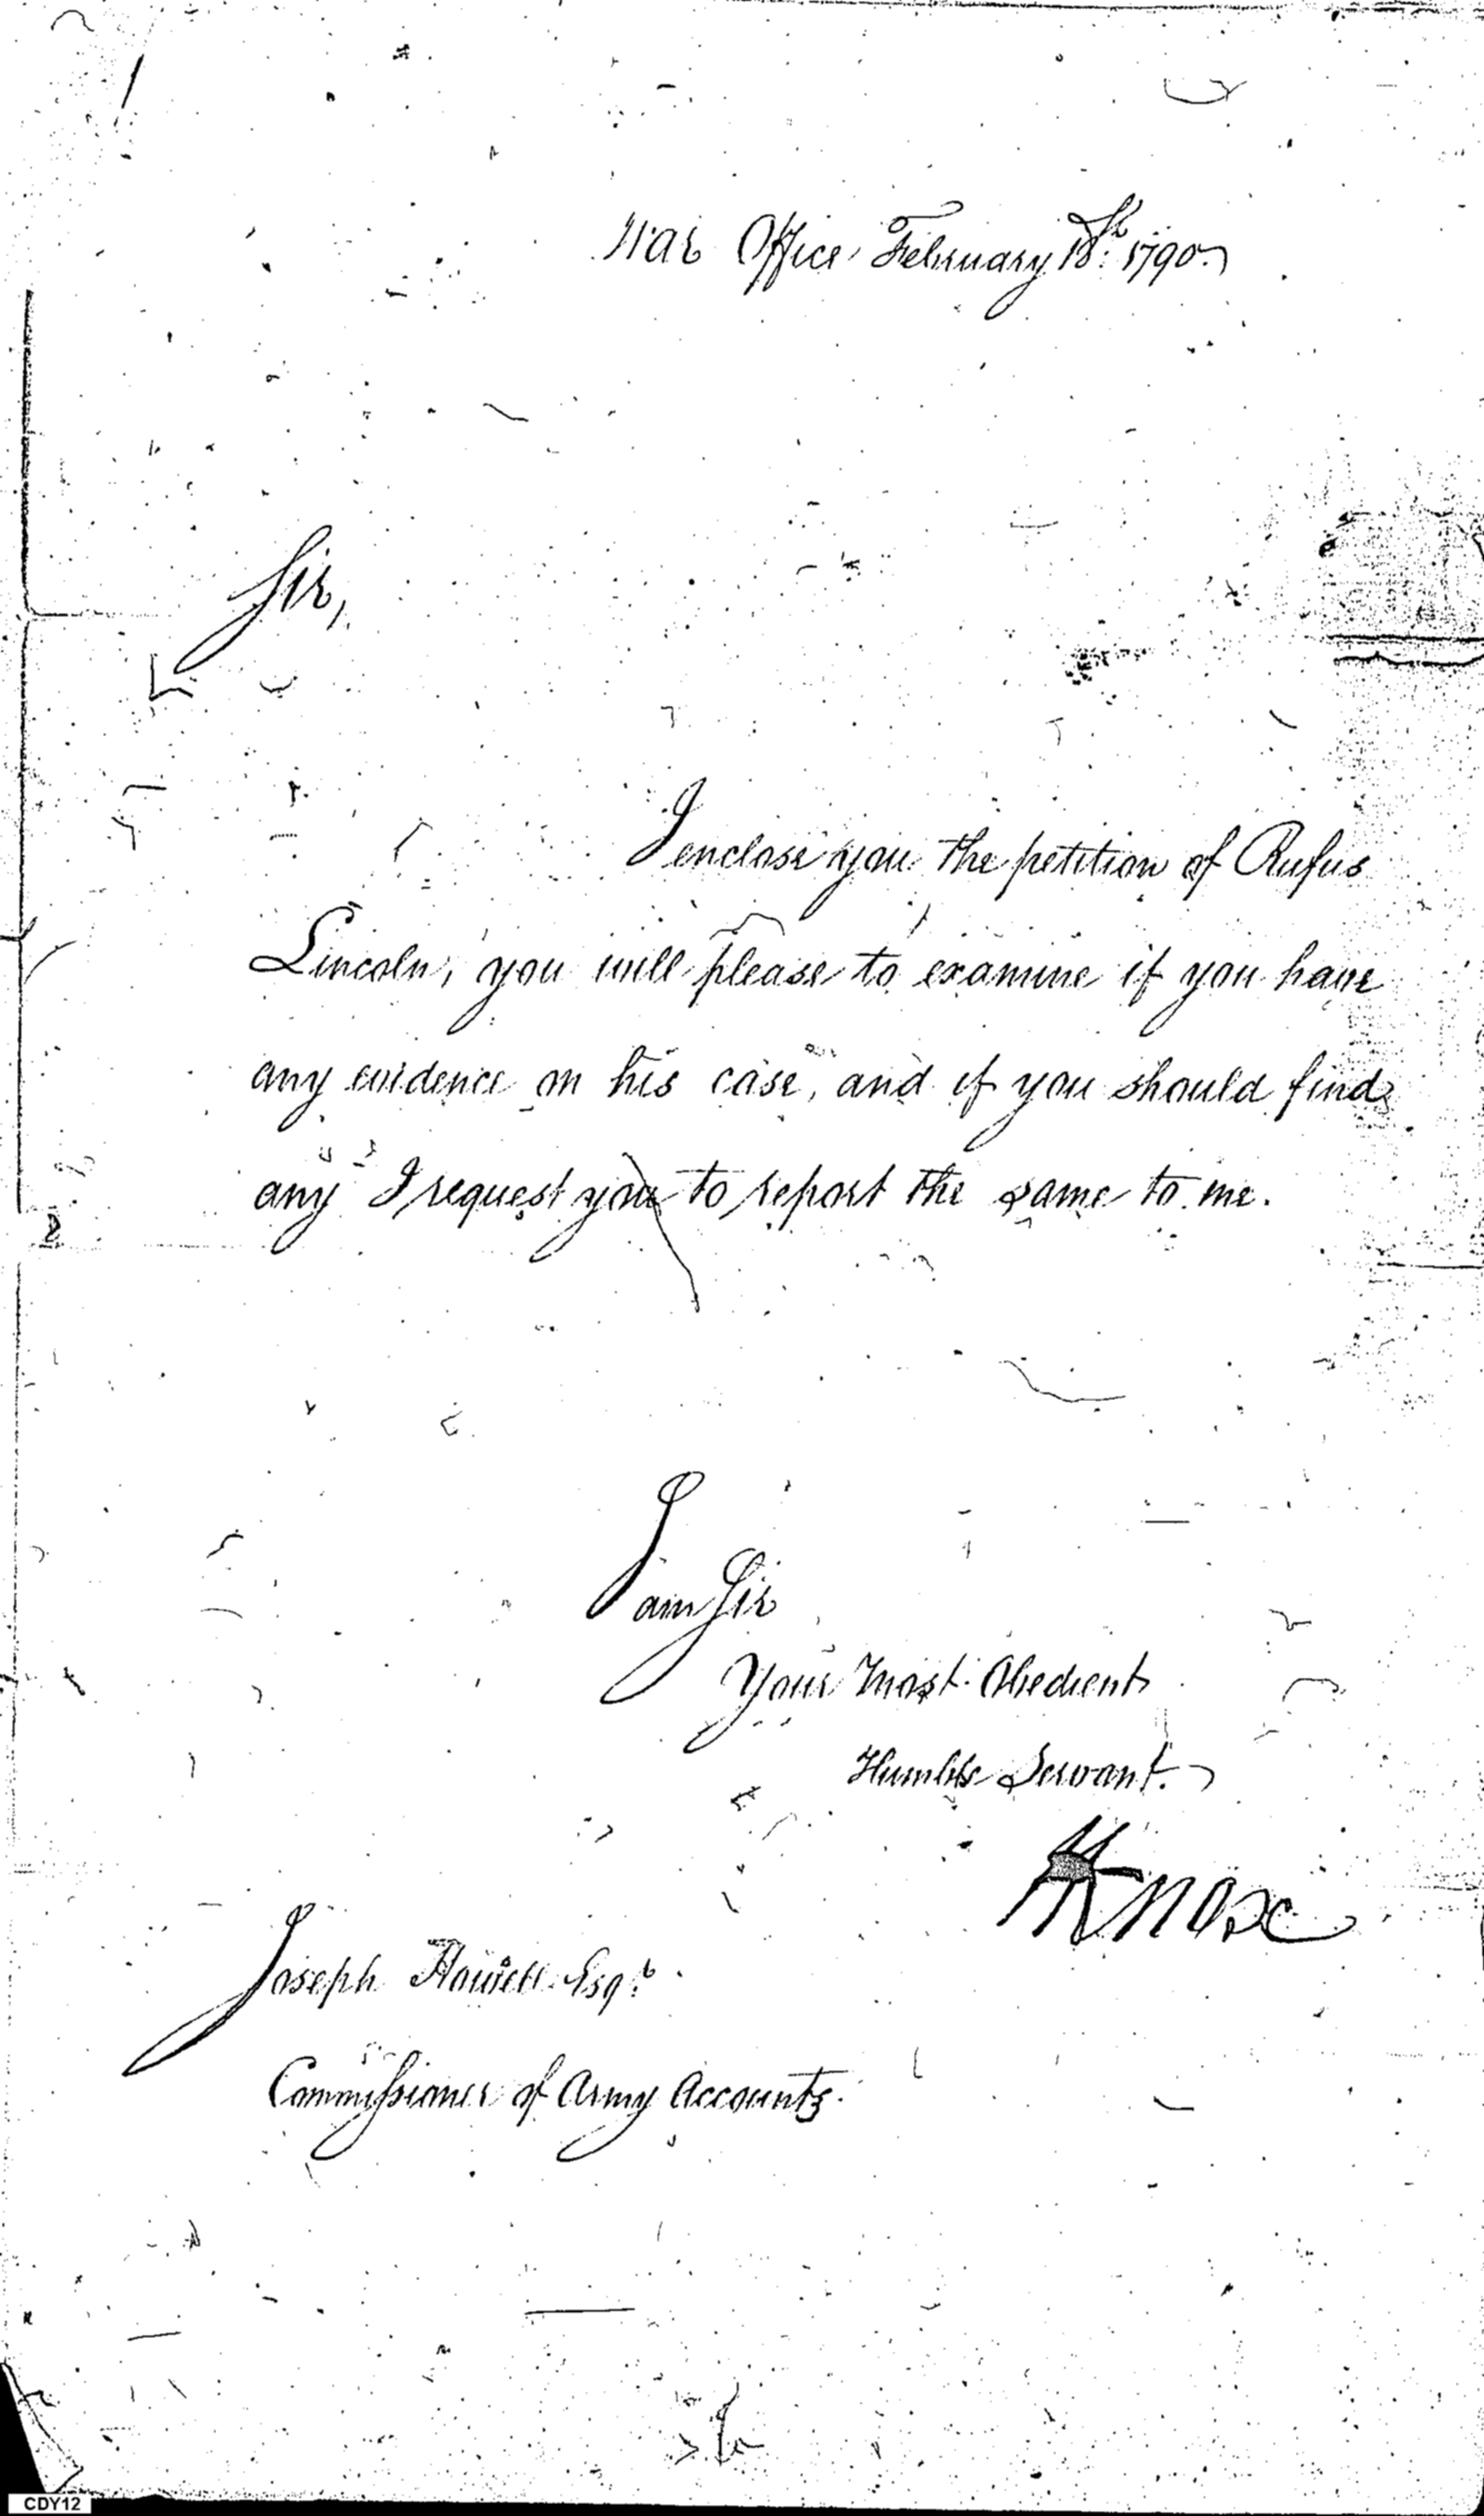 War Office February 18th. 1790.
Sir,
I enclose you the petition of Rufus
Lincoln, you will please to examine if you have
any evidence on his case, and if you should find
any I request you to report the same to me.
I am Sir
Your Most Obedient
Humble Servant.
HKnox
Joseph Howell Esqr.
Commissioner of Army Accounts.
CDY12